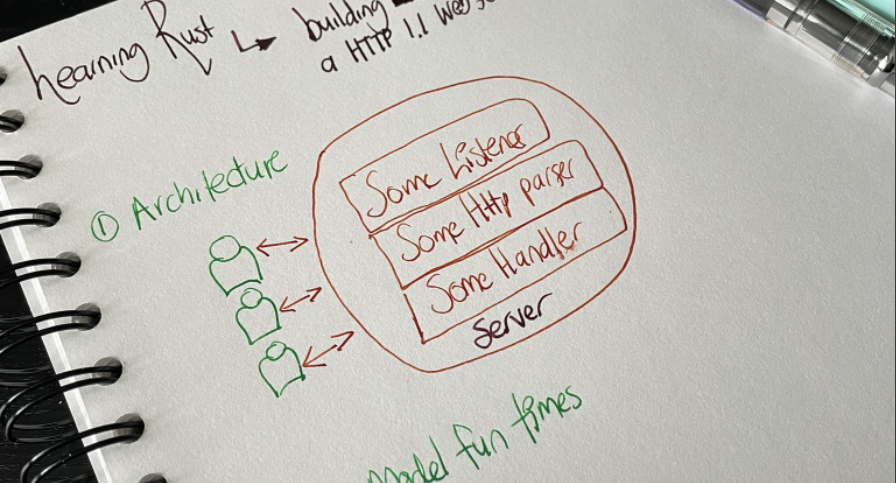 Learning Rust
building
a HTTP 1.1 Web
① Architecture
Some Listener
Some Http parser
Some Handler
Server
Model fun times